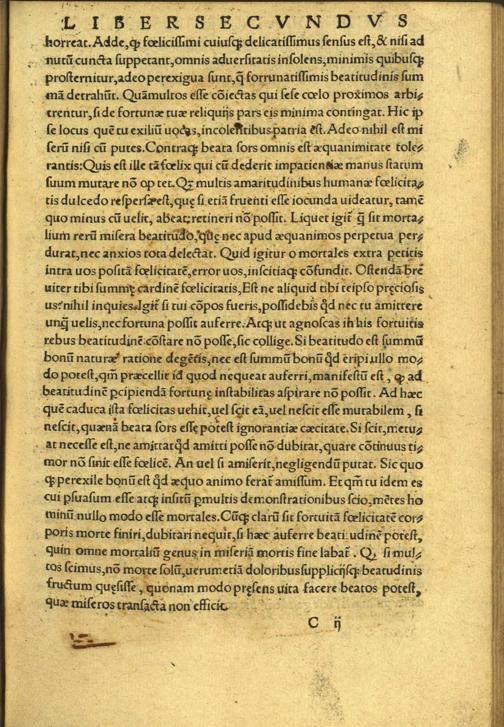 LIBER SECVNDVS
horreat. Adde, ꝙ fœlicissimi cuiusq; delicatissimus sensus est, & nisi ad
nutũ cuncta suppetant, omnis aduersitatis insolens, minimis quibusq;
prosternitur, adeo perexigua sunt, q̃ forrunatissimis beatitudinis sum
mã detrahũt. Quãmultos esse cõiectas qui sese cœlo proximos arbi⸗
trentur, si de fortunæ tuæ reliquijs pars eis minima contingat. Hic ip
se locus quẽ tu exiliũ uocas, incolentibus patria est. Adeo nihil est mi
serũ nisi cũ putes. Contraq; beata sors omnis est æquanimitate tole⸗
rantis: Quis est ille tã fœlix qui cũ dederit impatientiæ manus statum
suum mutare nõ op tet. Q; multis amaritudinibus humanæ fœlicita⸗
tis dulcedo respersa est, quę si etiã fruenti esse iocunda uideatur, tamẽ
quo minus cũ uelit, abeat, retineri nõ possit. Liquet igit̃ q̃ sit morta⸗
lium rerũ misera beatitudo, quę nec apud æquanimos perpetua per⸗
durat, nec anxios tota delectat. Quid igitur o mortales extra petitis
intra uos positã fœlicitatẽ, error uos, inscitiaq; cõfundit. Ostendã bre̊
uiter tibi summę cardinẽ fœlicitatis, Est ne aliquid tibi teipso pręciosis
us: nihil inquies. Igit̃ si tui cõpos fueris, possidebis qd nec tu amittere
unq̃ uelis, nec fortuna possit auferre. Atq; ut agnoscas in his fortuitis
rebus beatitudinẽ cõstare nõ posse, sic collige. Si beatitudo est summũ
bonũ naturæ ratione degẽtis, nec est summũ bonũ qd eripi ullo mo⸗
do potest, qm̃ præcellit id quod nequeat auferri, manifestũ est, ꝙ ad
beatitudinẽ pcipiendã fortunę instabilitas aspirare nõ possit. Ad hæc
quẽ caduca ista fœlicitas uehit, uel scit eã, uel nescit esse mutabilem, si
nescit, quænã beata sors esse potest ignorantiæ cæcitate. Si scit, metu⸗
at necesse est, ne amittat qd amitti posse nõ dubitat, quare cõtinuus ti⸗
mor nõ sinit esse fœlicẽ. An uel si amiserit, negligendũ putat. Sic quo
q; perexile bonũ est qd æquo animo ferat̃ amissum. Et qm̃ tu idem es
cui psuasum esse atq; insitũ pmultis demonstrationibus scio, mẽtes ho
minũ nullo modo esse mortales. Cũq; clarũ sit fortuitã fœlicitatẽ cor⸗
poris morte finiri, dubitari nequit, si hæc auferre beatitudinẽ potest,
quin omne mortaliũ genus in miseriã mortis fine labat̃. Q; si mul⸗
tos scimus, nõ morte solũ, uerumetiã doloribus supplicijsq; beatudinis
fructum quęsisse, quonam modo pręsens uita facere beatos potest,
quæ miseros transacta non efficit.
C ij